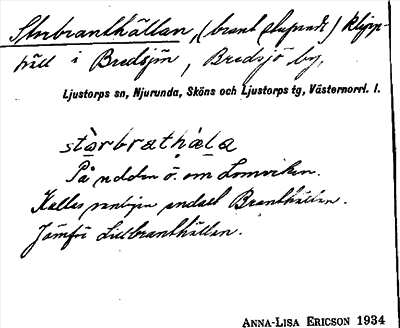 Storbranthällan, (brant stupande) klipp-
häll i Bredsjön, Bredsjö by,
Ljustorps sn, Njurunda, Sköns och Ljustorps tg, Västernorrl. l.
stàrbrathæ̀la
På udden ö. om Lomviken.
Kallas vanligen endast Branthällan.
Jämför Lillbranthällan.
ANNA-LISA ERICSON 1934